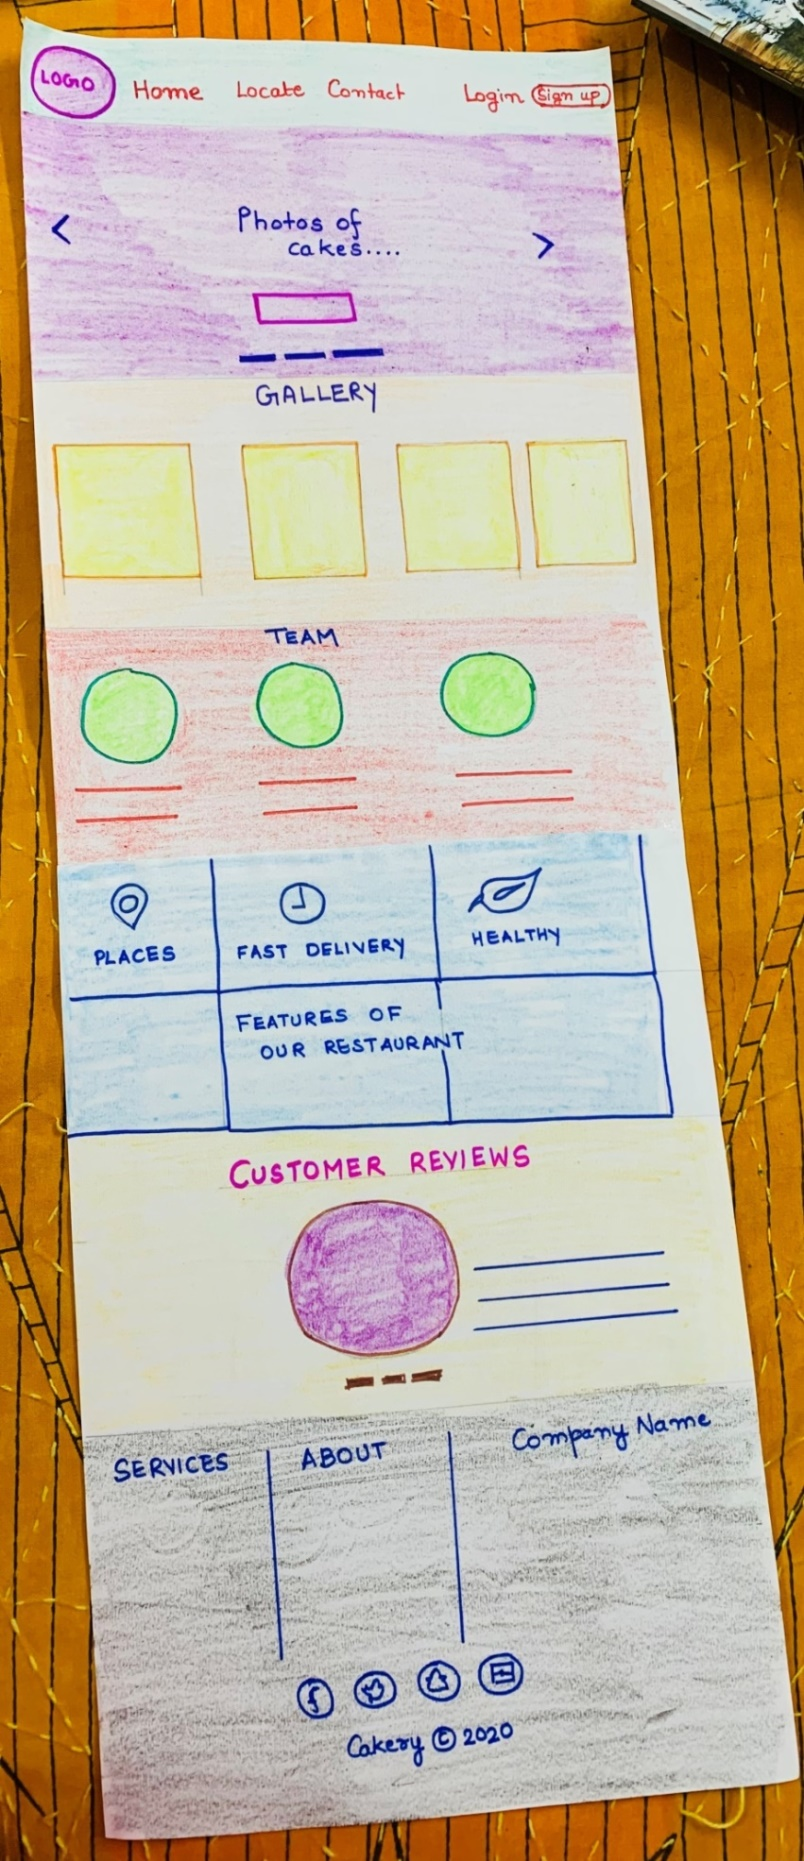 LOGO
Home Locate Contact Login Sign up
< >
Photos of
cakes....
GALLERY
TEAM
PLACES FAST DELIVERY HEALTHY
FEATURES OF
OUR RESTAURANT
CUSTOMER REVIEWS
SERVICES ABOUT Company Name
f
Cakery © 2020